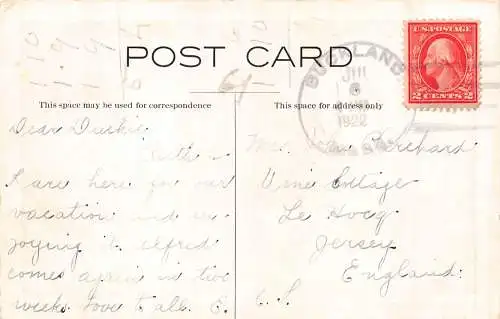 POST CARD
This space may be used for correspondence
This space for address only
U.S. POSTAGE
2 CENTS 2
BUCKLAND
6
1922
MASS.
Dear Duckie
Edith &
I are here for our
vacation and en-
joying it. Alfred
comes again in two
weeks. Love to all. E.
Mrs. John Perchard
Vine Cottage
Le Hocq
Jersey
England
C. I.